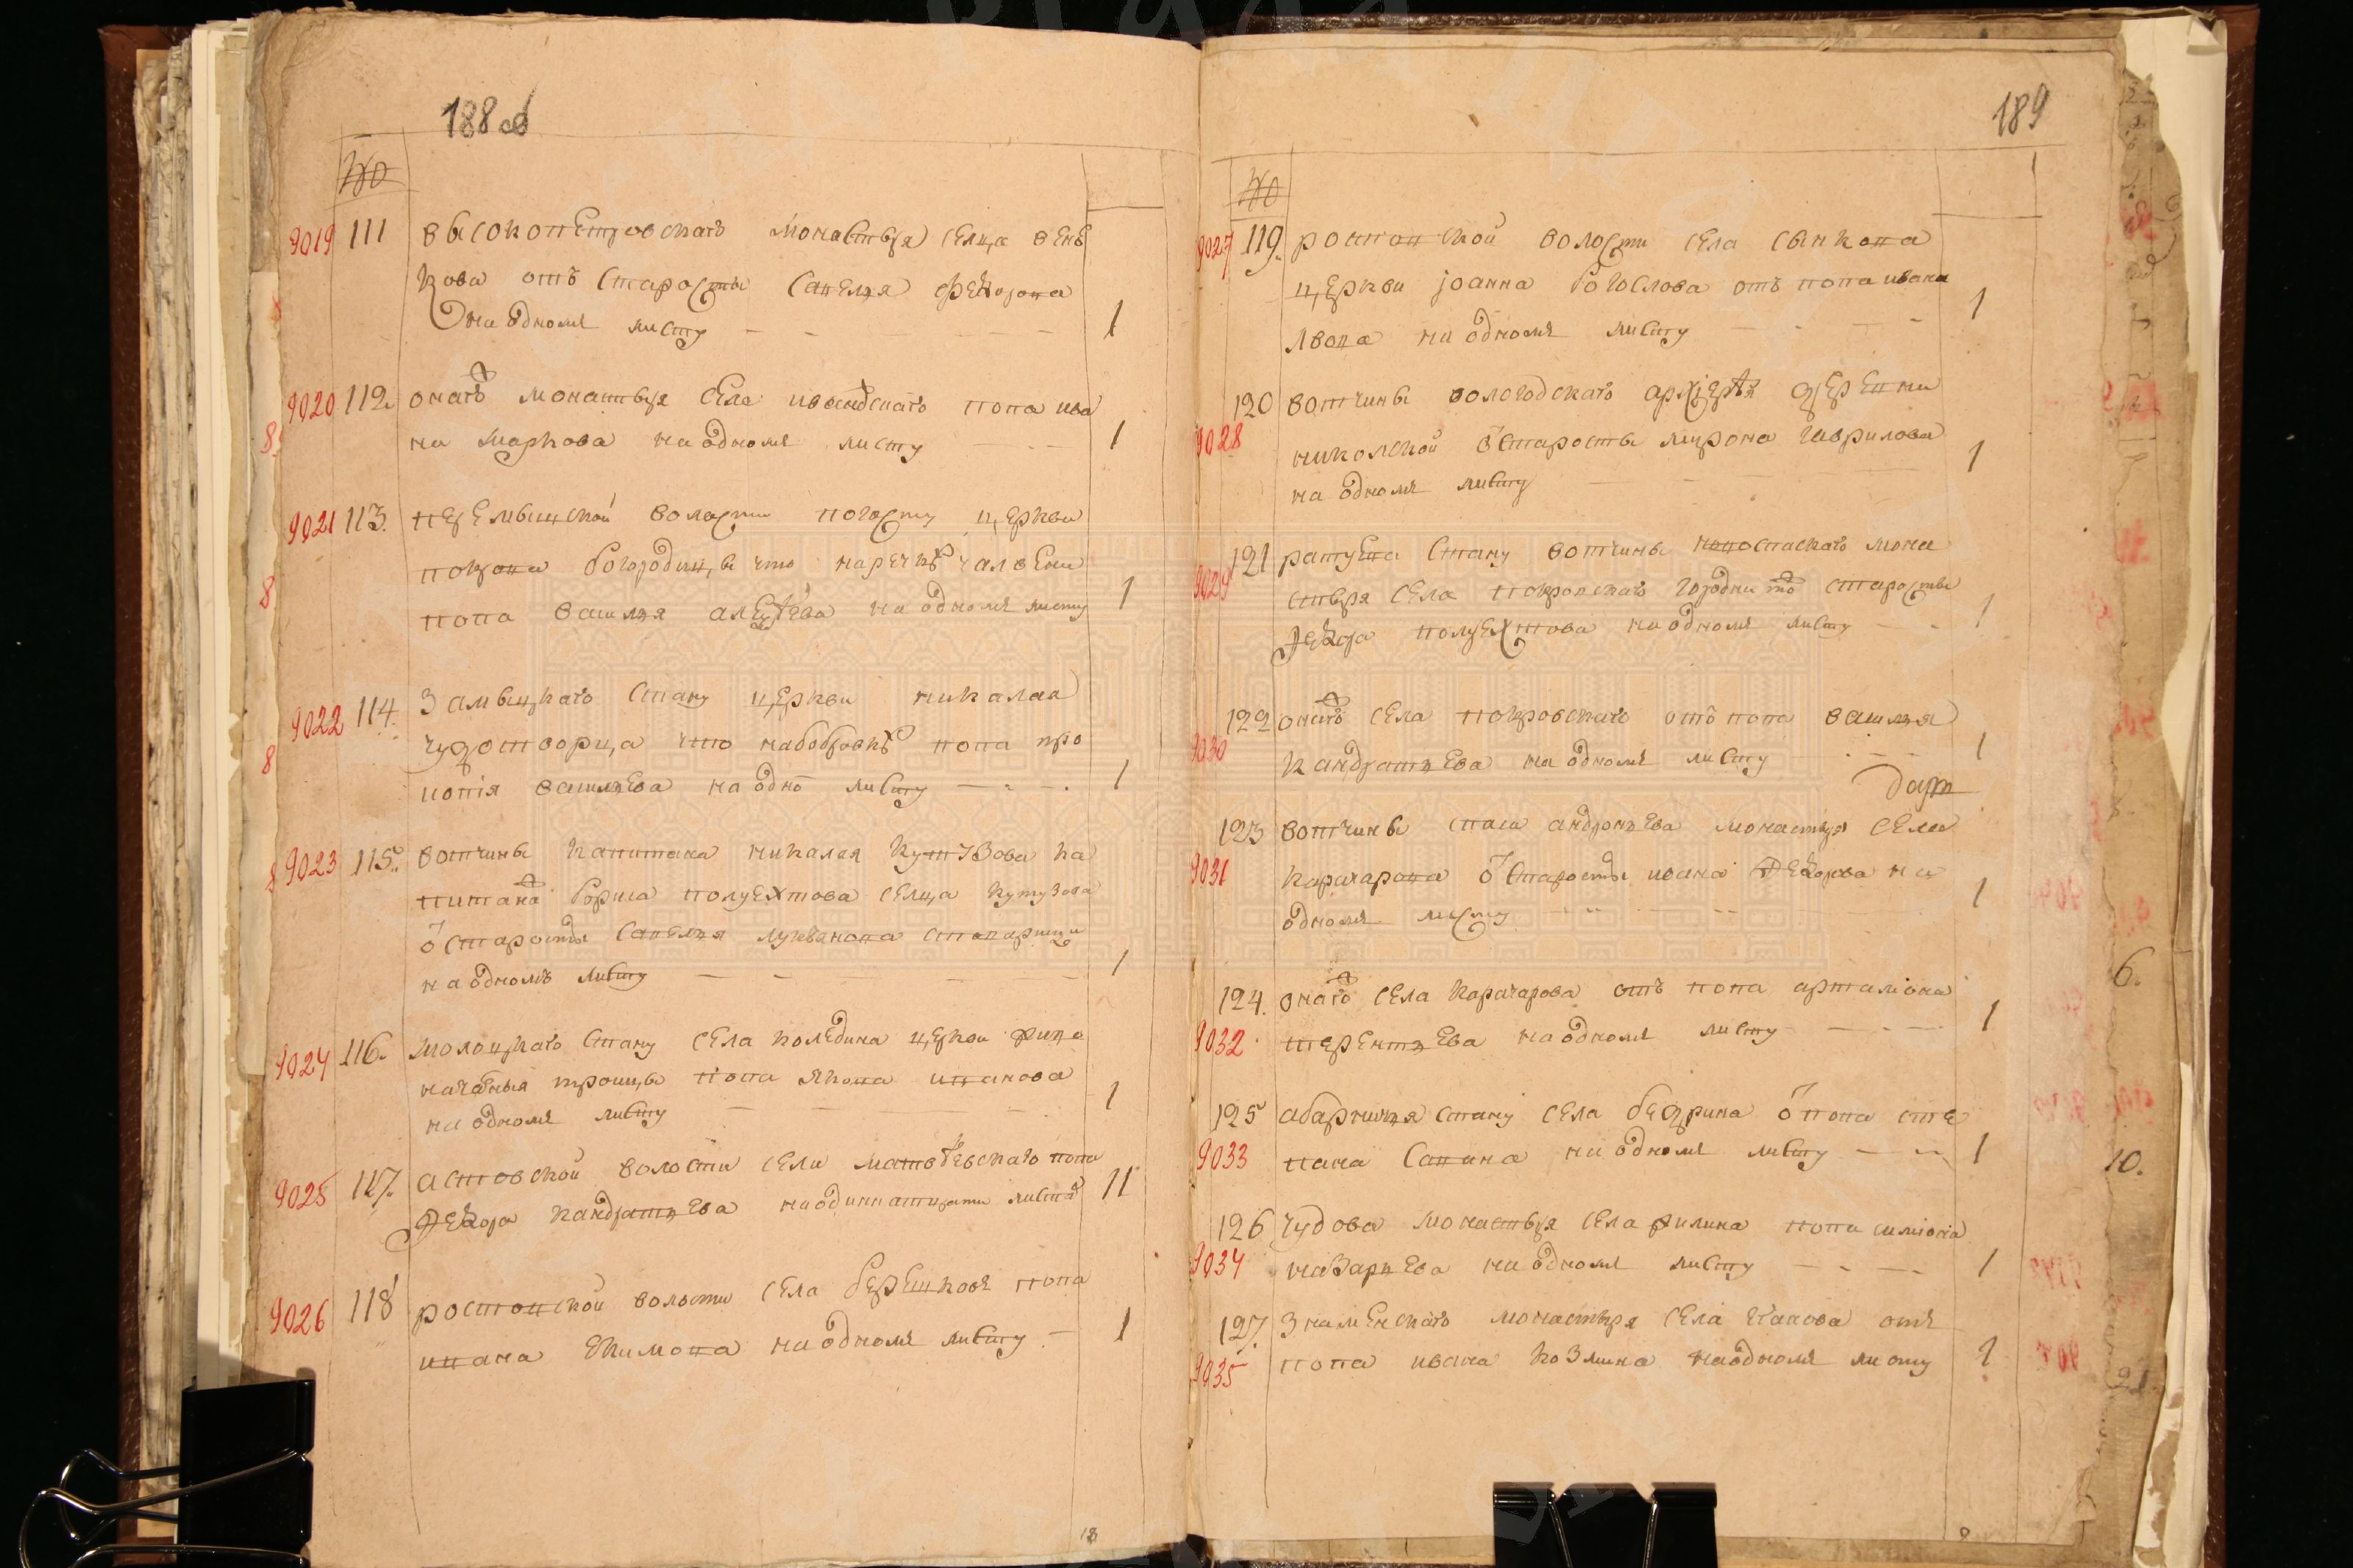 188 об
№
9019 111 высокопетровскаго монастыря селца вень
кова отъ старосты савелья федорова
на одномъ листу 1
9020 112 онагож монастыря села ивановскаго попа ива
на маркова на одномъ листу 1
9021 113. перемышской волости погосту церкви
покрова богородицы что наречке
попа василья алексеева на одномъ листу 1
9022 114. Замыцкаго стану церкви николая
чудотворца что набобровке попа про
василева на одно листу 1
9023 115. вотчины капитана николая кутузова ка
питанаж бориса полуехтова селца кутузова
от старосты савелья лукьянова
на одномъ листу 1
9024 116. молоцкаго стану села коледина церкви живо
начальныя троицы попа якова иванова
на одномъ листу 1
9025 117. волости села матвѣевскаго попа
Федора кандратьева на одиннатцати листах 11
9026 118 ростовской волости села берешково попа
ивана екимова на одномъ листу 1
189
№
9027 119. ростовской волости села сынкова
церкви иоанна богослова отъ попа ивана
львова на одномъ листу 1
120 вотчины вологодскаго архиерѣя деревни
9028 николской от старосты мирона гаврилова 1
на одномъ листу
121 ратуева стану вотчины новоспаскаго мона
9029 стыря села покровскаго городни тож старосты
Федора полуехтова на одномъ листу 1
122 онагож села покровскаго отъ попа василья
9030 кандратьева на одномъ листу 1
123 вотчины спаса андроньева монастыря села
9031 карачарова от старосты ивана Федорова на 1
одномъ листу
124. онагож села карачарова отъ попа артамиона
9032 терентьева на одномъ листу 1
125 стану села бедрина от попа сте
9033 пана савина на одномъ листу 1
126 чудова монастыря села филина попа симиона
9034 назарьева на одномъ листу 1
127. Знаменскаго монастыря села отъ
9035 попа ивана козмина на одномъ листу 1
6.
10.